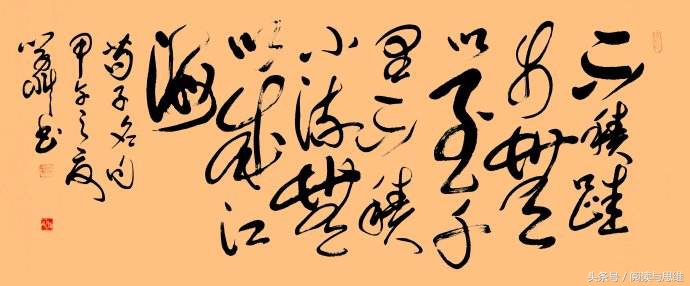 不積跬
步無
以至千
里不積
小流無
以成江
海
荀子名句
甲午之夏
书
头条号 / 阅读与思维